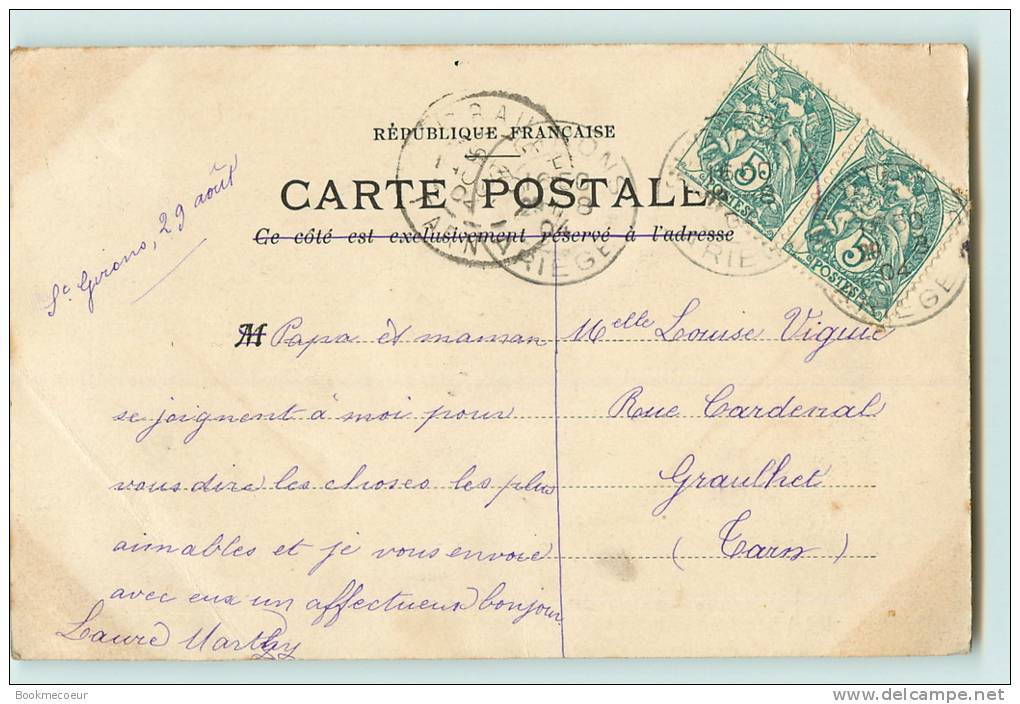 RÉPUBLIQUE FRANÇAISE
CARTE POSTALE
Ce côté est exclusivement réservé à l'adresse
St Girons, 29 août
M Papa et maman
se joignent à moi pour
vous dire les choses les plus
aimables et je vous envoie
avec eux un affectueux bonjour
Laure
Melle Louise Viguié
Rue Cardenal
Graulhet
(Tarn)
5
POSTES
5
POSTES
ARIEGE
04
Bookmecoeur
www.delcampe.net